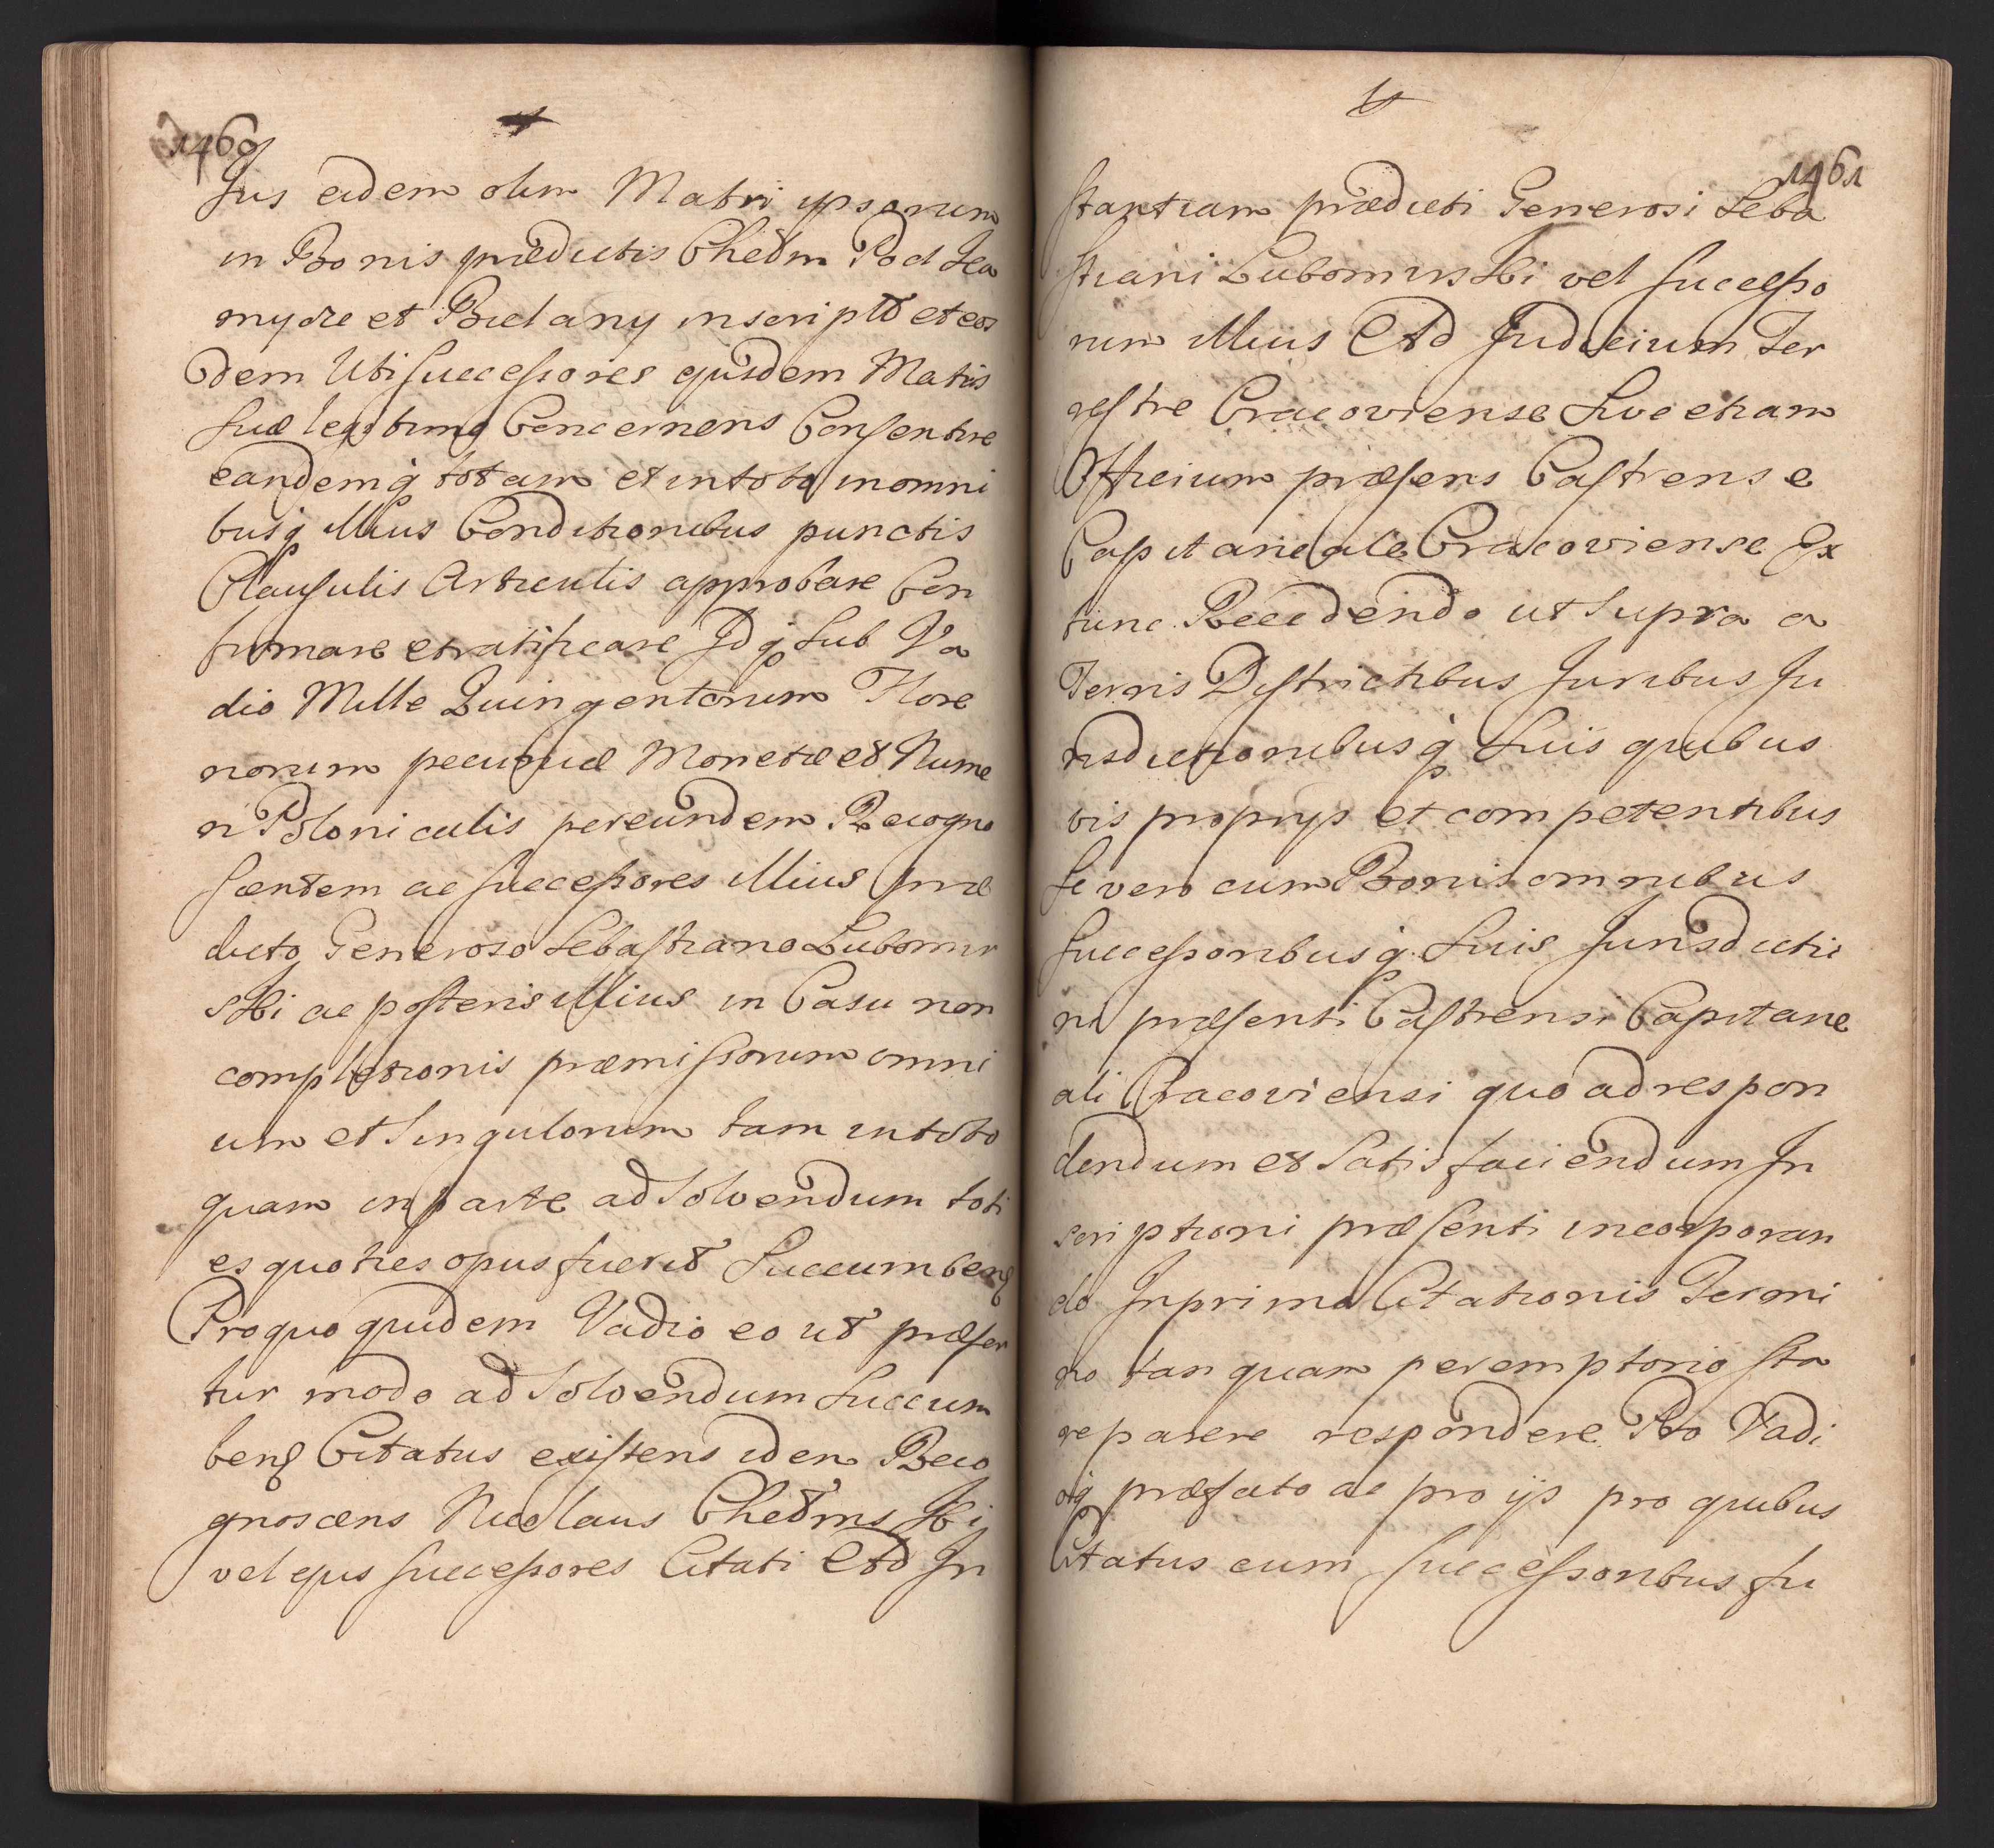 1460
Jus eidem olim Matri ypsorum
in Bonis prædictis Chełm Pod Ka
mycze et Bielany inscriptū et eos
dem Uti Successores ejusdem Matris
suæ legitimos Concernens Consentire
eandemq́ totam et in toto in omni
busq́ illius Conditionibus punctis
Clausulis Articulis approbare Con
firmare et ratificare Idq́ Sub Va
dio Mille Quingentorum Flore
norum pecuniæ Monetæ et Nume
ri Polonicalis per eundem Recogno
scentem ac Successores illius præ
dicto Generoso Sebastiano Lubomir
ski ac posteris illius in Casu non
completionis præmissorum omni
um et Singulorum tam in toto
quam in parte ad Solvendum toti
es quoties opus fuerit Succumbenȩ
Pro quo quidem Vadio eo ut præfer
tur modo ad Solvendum Succum
benȩ Citatus existens idem Reco
gnoscens Nicolaus Chełmski
vel ejus Successores Citati Ad In
1461
stantiam prædicti Generosi Seba
stiani Lubomirski vel Successo
rum illius Ad Judicium Ter
restre Cracoviense Sive etiam
Officium præsens Castrense
Capitaneale Cracoviense Ex
tunc Recedendo ut Supra a
Terris Districtibus Juribus Ju
risdictionibusq́ Suis quibus
vis proprijs et competentibus
Se vero cum Bonis omnibus
Successoribusq́ Suis Jurisdictio
ni præsenti Castrensi Capitane
ali Cracoviensi quo ad respon
dendum et Satisfaciendum In
scriptioni præsenti incorporan
do In primo Citationis Termi
no tanquam peremptorio sta
re parere respondere Pro Vadi
oq́ præfato ac pro ijs pro quibus
Citatus cum Successoribus fu